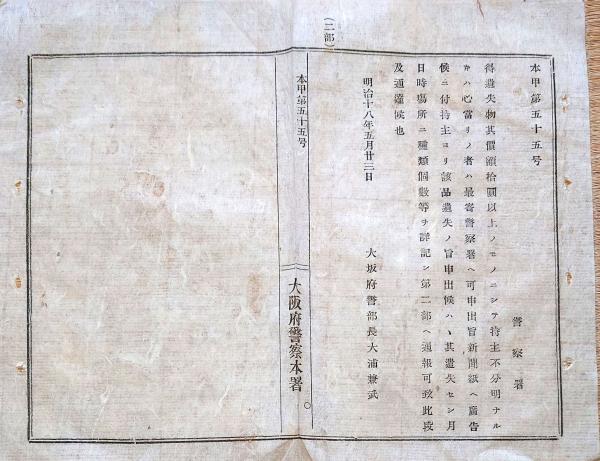 （二部）
本甲第五十五号
警察署
得遺失物其價額拾圓以上ノモノニシテ持主不分明ナル
カハ心當リノ者ハ最寄警察署ヘ可申出旨新聞紙ヘ廣告
候ニ付持主ヨリ該品遺失ノ旨申出候ハヽ其遺失セシ月
日時場所ニ種類個數等ヲ詳記シ第二部ヘ通報可致此段
及通達候也
明治十八年五月廿三日
大坂府警部長大浦兼武
本甲第五十五号
大阪府警察本署